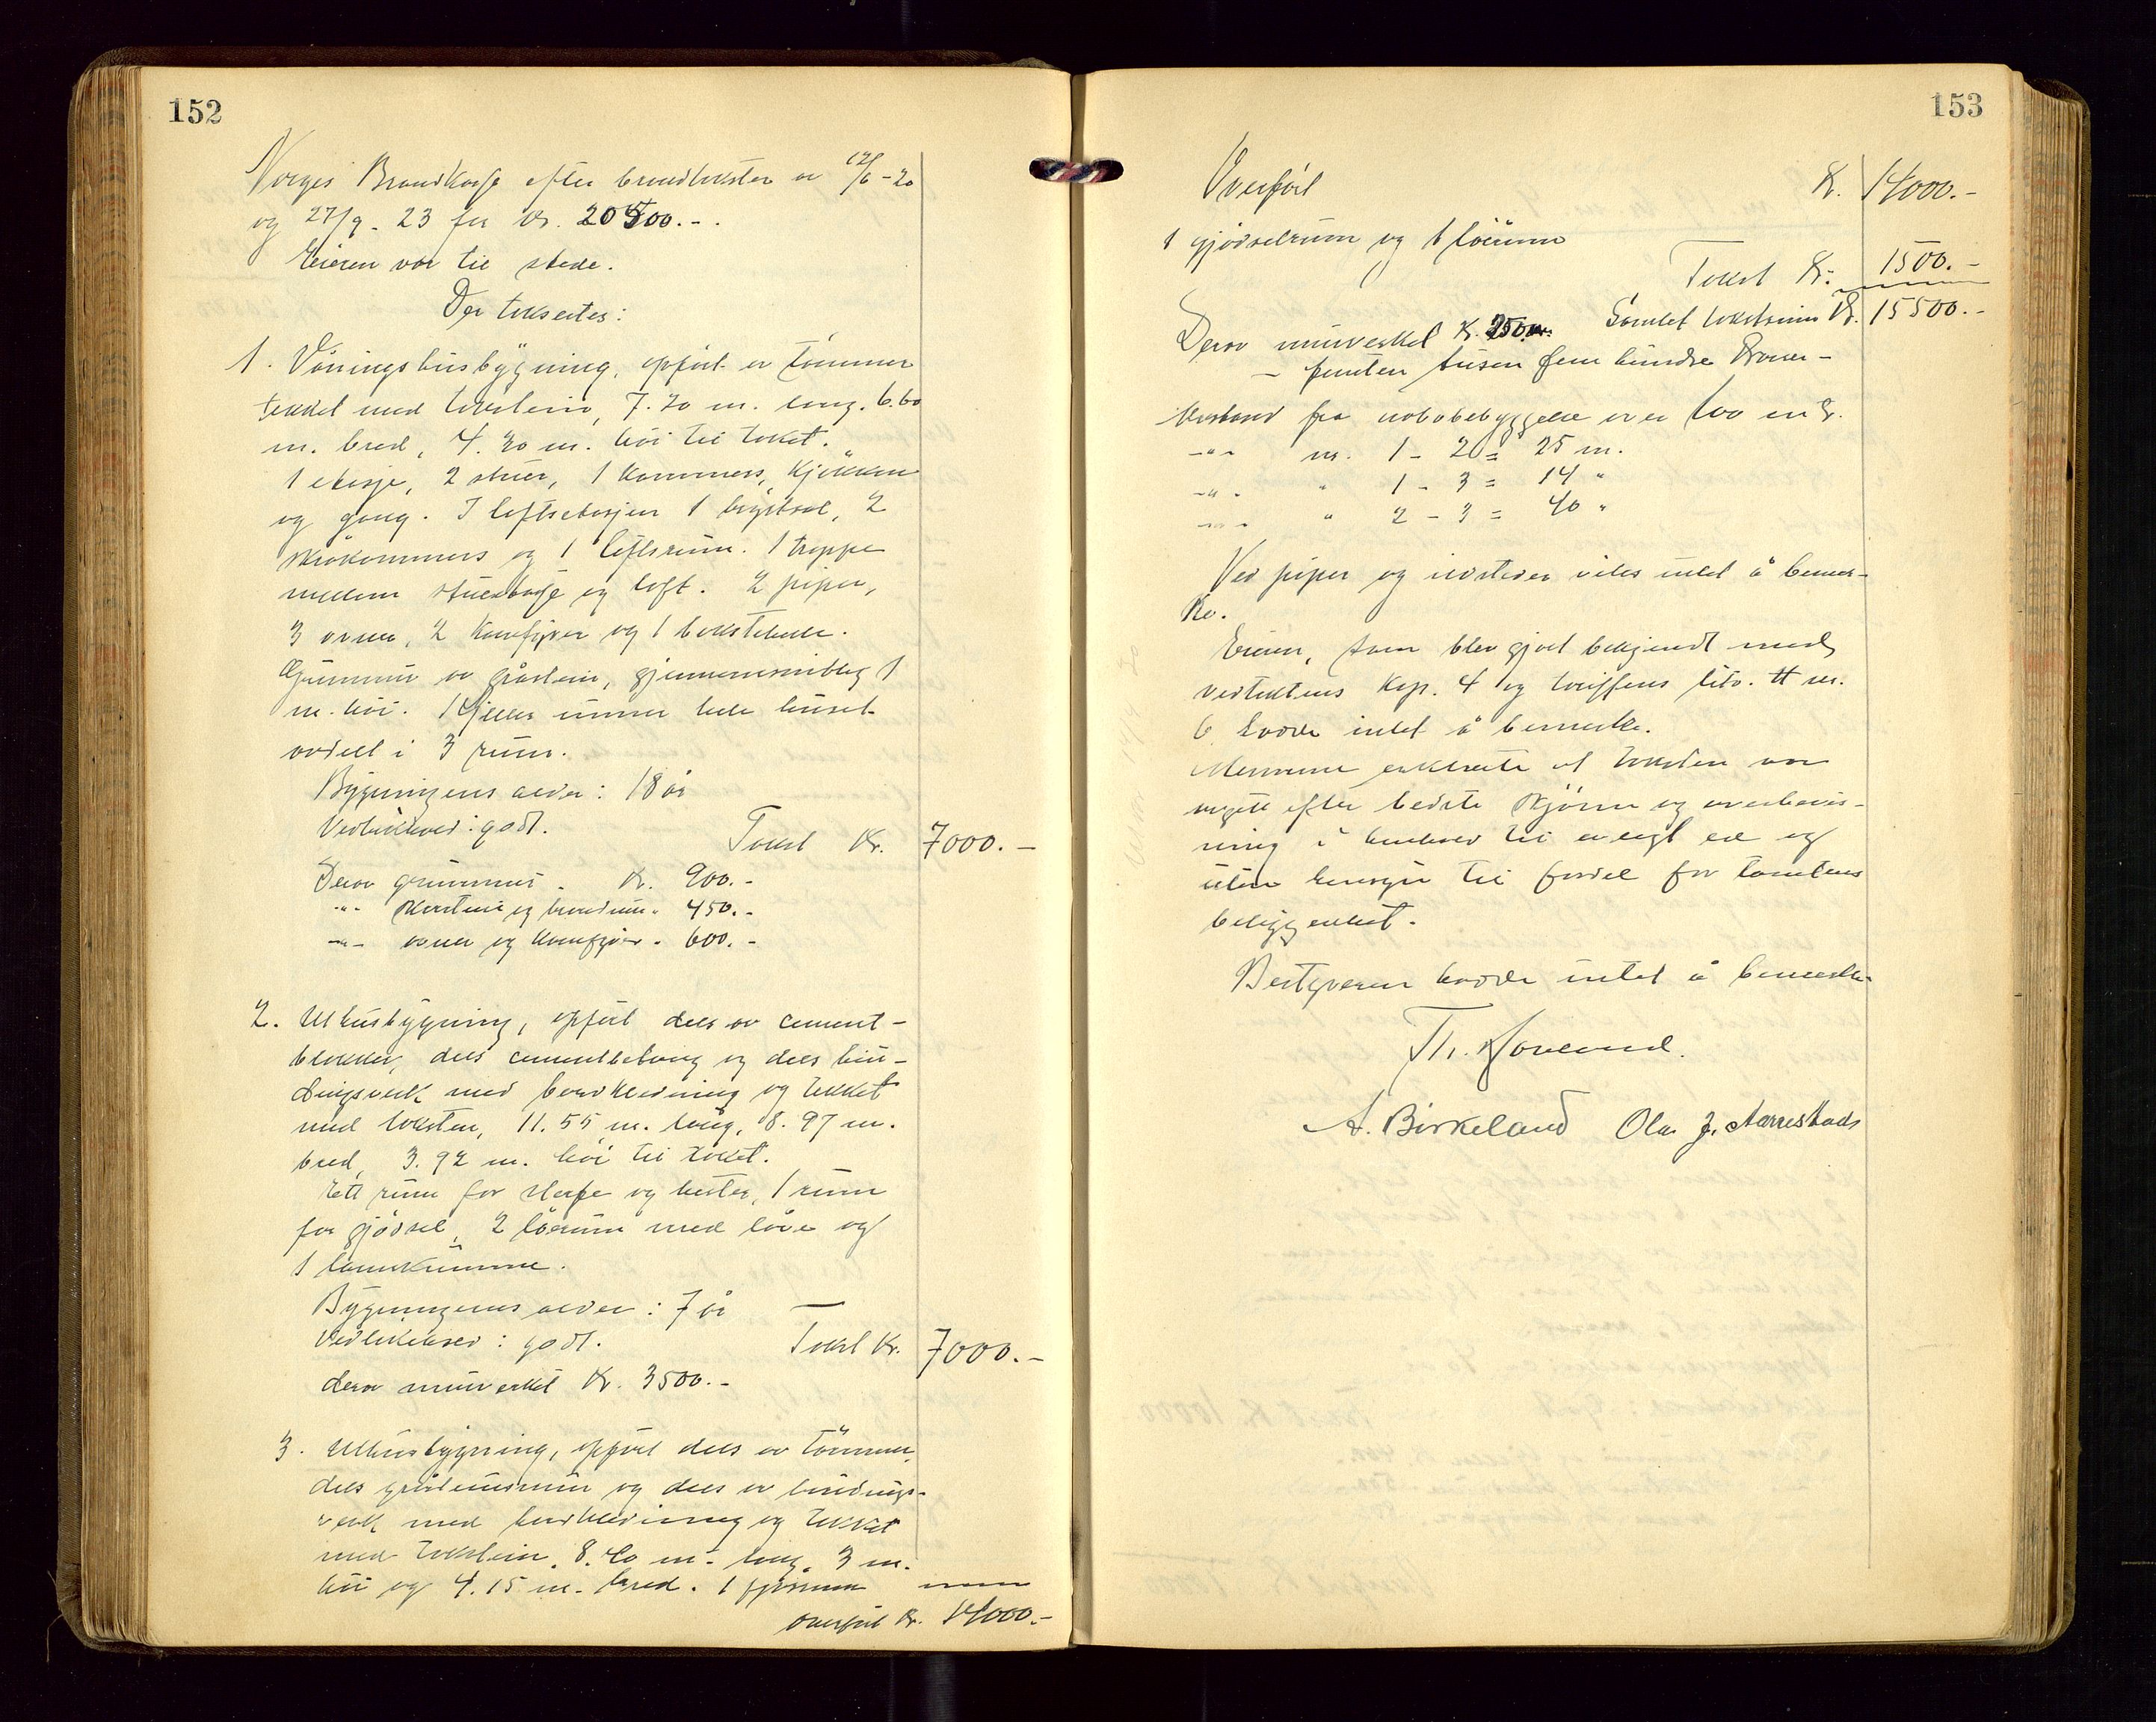 152
Norges Brandkasse efter brandtaksten av 12/6-20
og 27/9-23 for kr. 20500.-.
Eieren var til stede.
Der takseertes:
1. Våningshusbygning, opført av tömmer
tekket med takstein, 7.20 m. lang, 6.60
m. bred, 4.30 m. höi til taket.
1 etasje, 2 stuer, 1 kammers, kjökken
og gang. I loftsetasjen 1 loftsal, 2
skråkammers og 1 loftsrum. 1 trappe
mellem stueetasje og loft. 2 piper,
3 ovner, 2 komfyrer og 1 bakstehelle.
Grunnmur av gråstein, gjennemsnitlig 1
m. höi. 1 kjeller under hele huset
avdelt i 3 rum.
Bygningens alder: 18 år
Vedlikehold: godt.
Takst Kr. 7000.-
Derav grunnmur - Kr. 900.-
-"- skorstein og brandmur " 450.-
-"- ovner og komfyrer - 600.-
2. Uthusbygning, opført dels av cement-
blokker, dels cementbetong og dels bin-
dingsverk med bordklædning og tekket
med taksten, 11.55 m. lang, 8.97 m.
bred, 3.92 m. höi til taket.
Ett rum for storfe og hester, 1 rum
for gjødsel, 2 låerum med låve og
1 landkumme.
Bygningens alder: 7 år —
Vedlikehold: godt.
Takst Kr. 7000.-
derav murverket Kr. 3500.-
3. Uthusbygning, opført dels av tömmer,
dels gråsteinsmur og dels av bindings-
verk med bordklædning og tekket
med takstein, 8.40 m. lang, 3 m.
höi og 4.15 m. bred. 1 fjösrum
overført Kr. 14000.-
153
Overført K. 14000.-
1 gjødselrum og 1 låerum
Takst Kr. 1500.-
Derav murverket K. 250.00 Samlet takstsum Kr. 15500.-
- femten tusen fem hundre kroner -
Avstand fra nabobebyggelse over 100 mtr.
-"- nr. 1 - 2 = 25 m.
-"- " 1 - 3 = 14 "
-"- " 2 - 3 = 40 "
Ved piper og ildsteder viltes intet å bemer-
ke.
Eieren, som blev gjort bekjendt med
vedtektens kap. 4 og tariffens litr. H nr.
6 hadde intet å bemerke.
Mennene erklærte at taksten var
avgitt efter bedste skjönn og overbevis-
ning i henhold til avlagt ed og
uten hensyn til fordel for tomtens
beliggenhet.
Bestyreren hadde intet å bemerke.
Th. Haaland.
A. Birkeland Ola J. Aarrestads